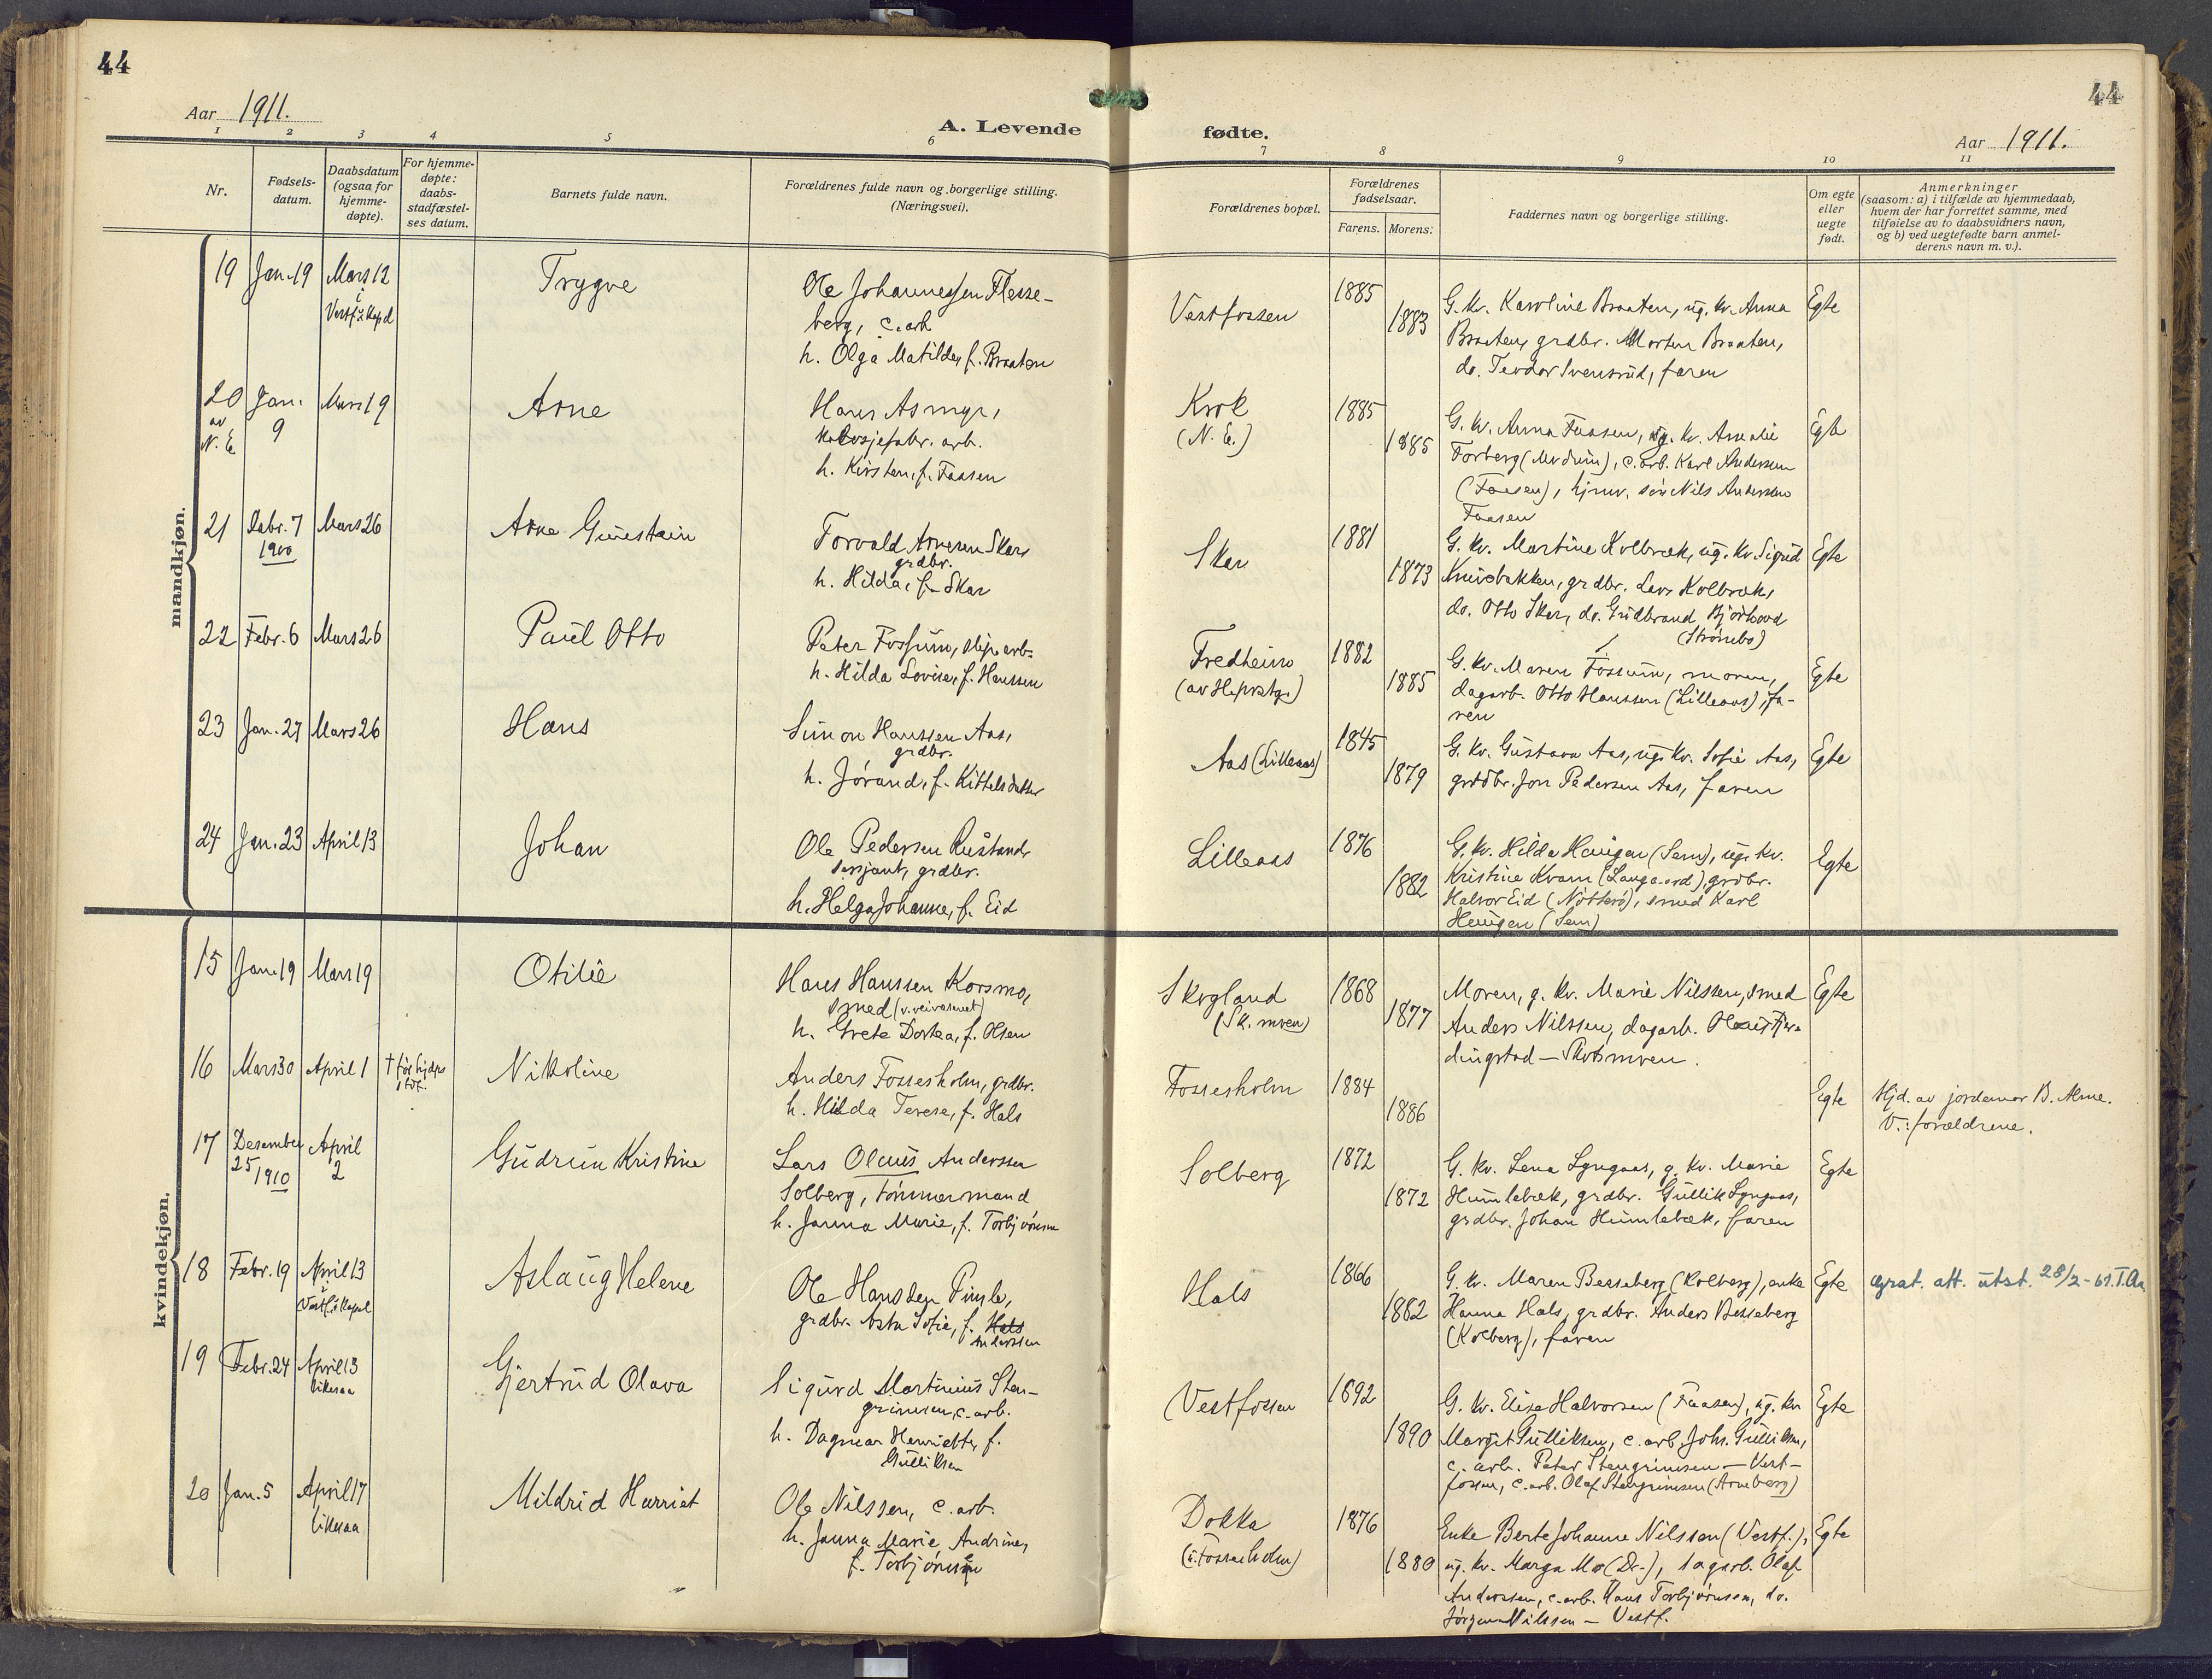 44
Aar 1911.
A. Levende
1 2 3 4 5 6
Nr.
Fødsels-
datum.
Daabsdatum
(ogsaa for
hjemme-
døpte).
For hjemme-
døpte:
daabs-
stadfæstel-
ses datum.
Barnets fulde navn.
Forældrenes fulde navn og borgerlige stilling.
(Næringsvei).
mandkjøn.
19 Jan. 19 Mars 12
Vestf. Kapel
Trygve
Ole Johannessen Flesse-
berg, c. arb
h. Olga Matilde, f. Braaten
20
av
N. E.
Jan.
9
Mars 19
Arne
Hans Asmyr,
arb.
h. Kirsten, f. Faasen
21 Debr. 7
1910
Mars 26
Arne Gunstein
Torvald Arnesen Skar,
grdbr.
h. Hilda, f. Skar
22 Febr. 6 Mars 26
Paul Otto
Peter Fossum, slip. arb.
h. Hilda Lovise, f. Hanssen
23 Jan. 27 Mars 26
Hans
Simon Hanssen Aas,
grdbr.
h. Jørand, f. Kittelsdatter
24 Jan. 23 April 13
Johan
Ole Pedersen Rustand,
sersjant, grdbr.
h. Helga Johanne, f. Eid
kvindekjøn.
15 Jan. 19 Mars 19
Otilie
Hans Hanssen Korsmo,
smed (v. veivæsenet)
h. Grete Dortea, f. Olsen
16 Mars 30 April 1
† før hjdps
stdf.
Nikoline
Anders Fossesholm, grdbr.
h. Hilda Terese, f. Hals
17 Desember
25 1910
April
2
Gudrun Kristine
Lars Olaus Anderssen
Solberg, tømmermand
h. Janna Marie, f. Torbjørnsen
18 Febr. 19 April 13
i
Vestf. Kapel
Aslaug Helene
Ole Hanssen Pimle,
grdbr. Asta Sofie, f. Hals
Anderssen
19 Febr. 24 April 13
likesaa
Gjertrud Olava
Sigurd Martinius Sten-
grimsen, c. arb.
h. Dagmar Henriette, f.
Gulliksen
20 Jan. 5 April 17
likesaa
Mildrid Harriet
Ole Nilssen, c. arb.
h. Janna Marie Andrine,
f. Torbjørnsen
44
fødte.
Aar 1911.
7 8 9 10 11
Forældrenes bopæl.
Forældrenes
fødselsaar.
Farens. Morens.
Faddernes navn og borgerlige stilling.
Om egte
eller
uegte
født.
Anmerkninger
(saasom: a) i tilfælde av hjemmedaab,
hvem der har forrettet samme, med
tilføielse av to daabsvidners navn,
og b) ved uegtefødte barn anmel-
derens navn m. v.).
Vestfossen
1885
1883
G. kv. Karoline Braaten, ug. kv. Anna
Braaten, grdbr. Morten Braaten,
do. Teodor Svensrud, faren
Egte
Krok
(N. E.)
1885
1885
G. kv. Anna Faasen, ug. kv. Amalie
Forberg (Modum), c. arb. Karl Anderssen
(Faasen), hjmv. søn Nils Anderssen
Faasen
Egte
Skar
1881
1873
G. kv. Martine Kolbræk, ug. kv. Sigrid
Knivebakken, grdbr. Lars Kolbræk,
do. Otto Skar, do. Gudbrand Bjørhovd
(Strømbo)
Egte
Fredheim
(av Hapsstg.)
1882
1885
G. kv. Maren Fossum, moren,
dagarb. Otto Hanssen (Lilleaas), fa-
ren
Egte
Aas (Lilleaas)
1845
1879
G. kv. Gustava Aas, ug. kv. Sofie Aas,
grdbr. Jon Pedersen Aas, faren
Egte
Lilleaas
1876
1882
G. kv. Hilda Haugen (Sem), ug. kv.
Kristine Kvam (Langaard), grdbr.
Halvor Eid (Nøtterø), smed Karl
Haugen (Sem)
Egte
Skogland
(Sk. moen)
1868
1877
Moren, g. kv. Marie Nilssen, smed
Anders Nilssen, dagarb. Olaus Fjer-
dingstad — Skotsmoen.
Egte
Fossesholm
1884
1886
Egte
Hjd. av jordemor B. Alme.
V.: forældrene.
Solberg
1872
1872
G. kv. Lena Lyngaas, g. kv. Marie
Humlebæk, grdbr. Gullik Lyngaas,
grdbr. Johan Humlebæk, faren
Egte
Hals
1866
1882
G. kv. Maren Besseberg (Kolberg), enke
Hanna Hals, grdbr. Anders Besseberg
(Kolberg), faren
Egte
grat. att. utst. 28/2-61. T. Aa
Vestfossen
1892
1890
G. kv. Elise Halvorsen (Faasen), ug. kv
Margit Gulliksen, c. arb. Johs. Gulliksen,
c. arb. Peter Stengrimsen — Vest-
fossen, c. arb. Olaf Stengrimsen (Arneberg)
Egte
Dokka
(v. Fossesholm)
1876
1880
Enke Berte Johanne Nilssen (Vestf.),
ug. kv. Marga Mo (Dr.), dagarb. Olaf
Anderssen, c. arb. Hans Torbjørnsen, do.
Jørgen Nilssen — Vestf.
Egte